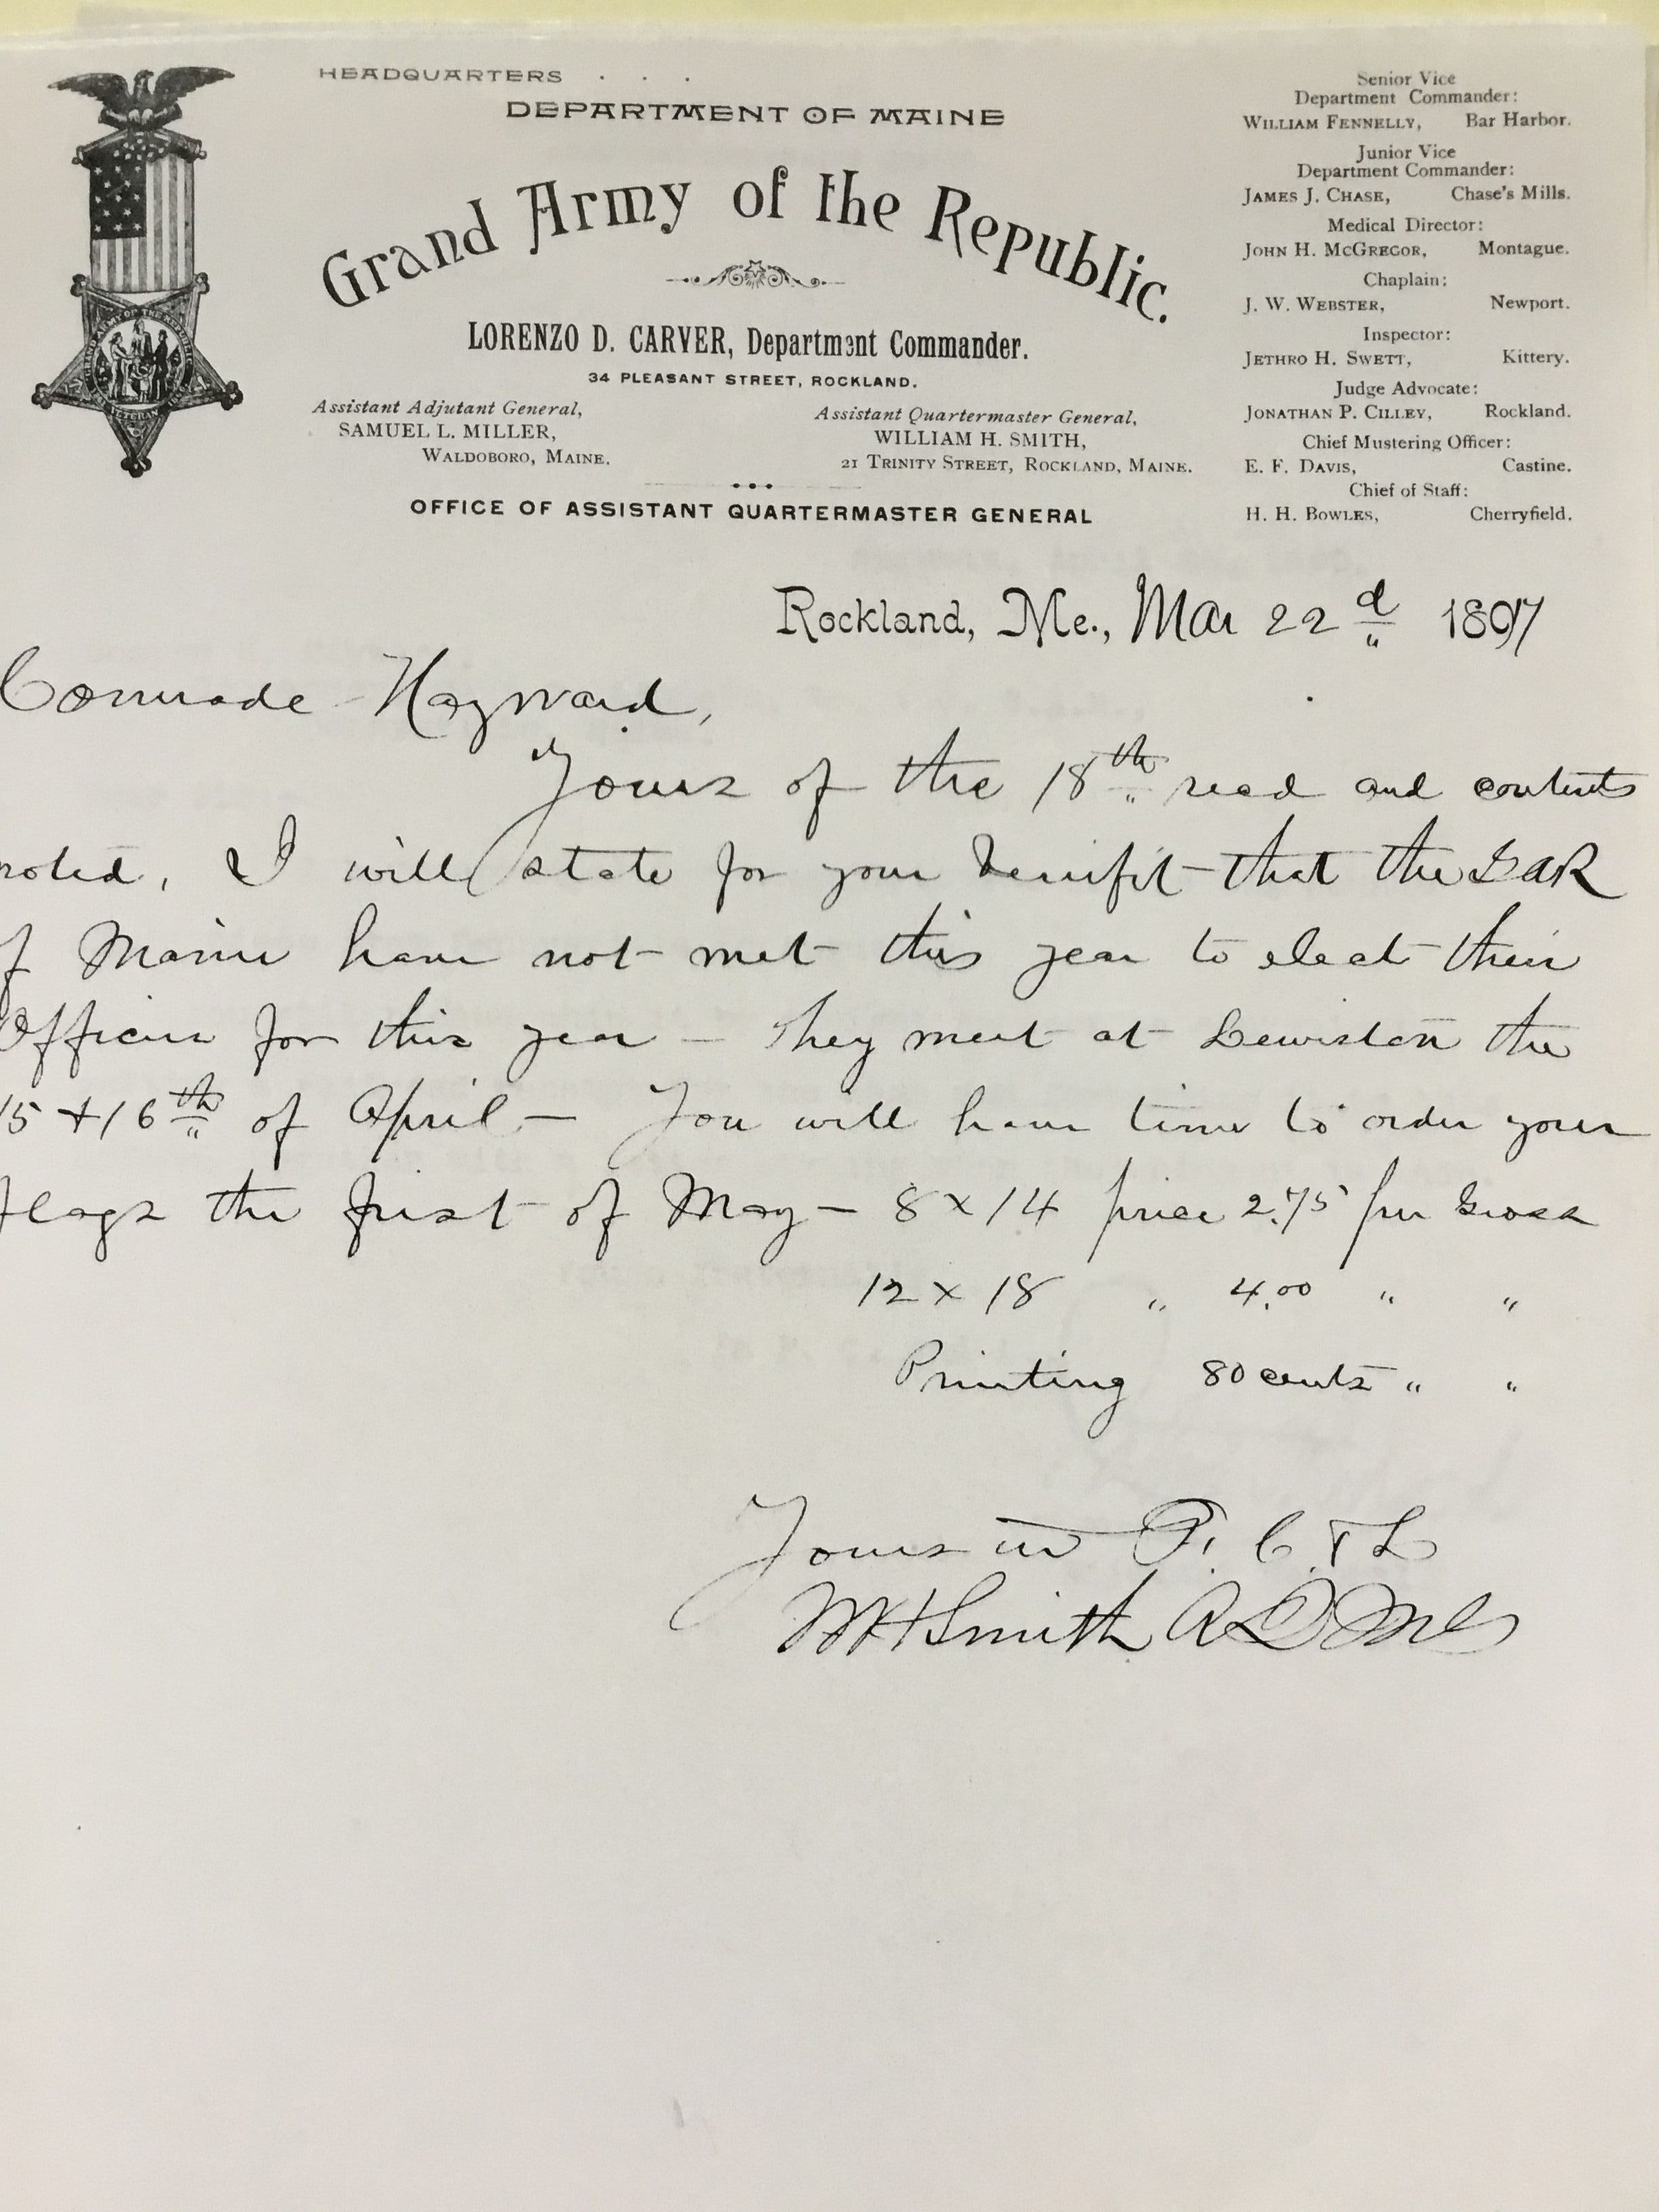 HEADQUARTERS . . .
DEPARTMENT OF MAINE
Grand Army of the Republic.
LORENZO D. CARVER, Department Commander.
34 PLEASANT STREET, ROCKLAND.
Assistant Adjutant General,
SAMUEL L. MILLER,
WALDOBORO, MAINE.
Assistant Quartermaster General,
WILLIAM H. SMITH,
21 TRINITY STREET, ROCKLAND, MAINE.
OFFICE OF ASSISTANT QUARTERMASTER GENERAL
Senior Vice
Department Commander:
WILLIAM FENNELLY, Bar Harbor.
Junior Vice
Department Commander:
JAMES J. CHASE, Chase's Mills.
Medical Director:
JOHN H. McGREGOR, Montague.
Chaplain:
J. W. WEBSTER, Newport.
Inspector:
JETHRO H. SWETT, Kittery.
Judge Advocate:
JONATHAN P. CILLEY, Rockland.
Chief Mustering Officer:
E. F. DAVIS, Castine.
Chief of Staff:
H. H. BOWLES, Cherryfield.
GRAND ARMY OF THE REPUBLIC
VETERAN
Rockland, Me., Mar 22d 1897
Comrade Hayward,
Yours of the 18th read and contents
noted, I will state for your benifit that the GAR
of Maine have not met this year to elect their
Officers for this year – They meet at Lewiston the
15 + 16th of April – You will have time to order your
flags the first of May – 8 x 14 price 2.75 per Gross
12 x 18 " 4.00 " "
Printing 80 cents " "
Yours in F. C. & L
WH Smith A Q M G